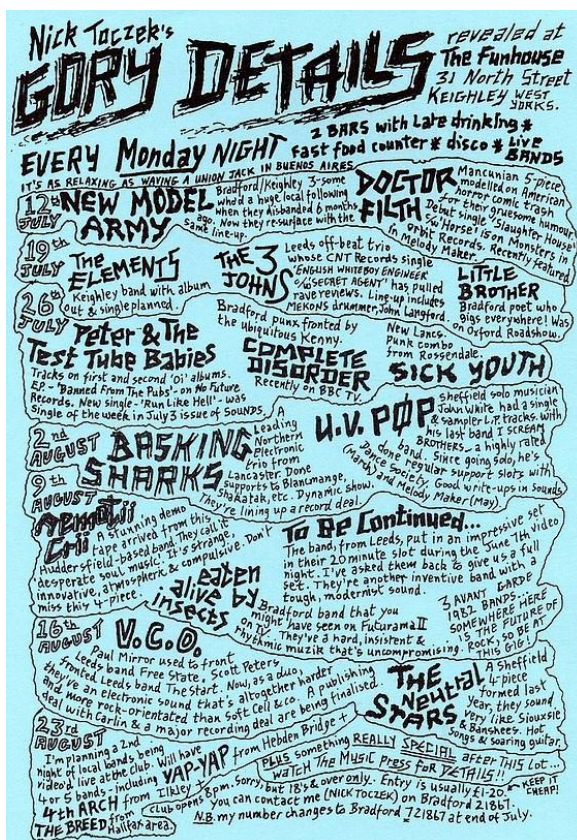 Nick Toczek's
GORY DETAILS
revealed at
The Funhouse
31 North Street
KEIGHLEY WEST YORKS.
EVERY Monday NIGHT
2 BARS with Late drinking *
fast food counter * disco * LIVE BANDS
IT'S AS RELAXING AS WAVING A UNION JACK IN BUENOS AIRES
12th JULY
NEW MODEL ARMY
Bradford/Keighley 3-some
who'd a huge local following
when they disbanded 6 months
ago. Now they re-surface with the
same line-up.
DOCTOR FILTH
Mancunian 5-piece
modelled on American
horror comic trash
for their gruesome humour
Debut single 'Slaughter House'
c/w 'Horse' is on Monsters in
Orbit Records. Recently featured
in Melody Maker.
19th JULY
The ELEMENTS
Keighley band with album
out & single planned.
THE 3 JOHNS
Leeds off-beat trio
whose CNT Records single
'ENGLISH WHITEBOY ENGINEER
c/w SECRET AGENT' has pulled
rave reviews. Line-up includes
MEKONS drummer, John Langford.
LITTLE BROTHER
Bradford poet who
gigs everywhere! Was
on Oxford Roadshow.
26th JULY
Peter & The Test Tube Babies
Tracks on first and second 'Oi' albums.
EP - 'Banned From The Pubs' - on No Future
Records. New single - 'Run Like Hell' - was
Single of the week in July 3 issue of SOUNDS.
Bradford punx fronted by
the ubiquitous Kenny.
COMPLETE DISORDER
Recently on BBC TV.
New Lancs.
Punk combo
from Rossendale.
SICK YOUTH
2nd AUGUST
BASKING SHARKS
A
Leading
Northern
Electronic
trio from
Lancaster. Done
supports to Blancmange,
Shakatak, etc. Dynamic show.
They're lining up a record deal.
U.V. PØP
Sheffield solo musician
John White had a single
& sampler L.P. tracks with
his last band I SCREAM
BROTHERS - a highly rated
band. Since going solo, he's
done regular support slots with
Dance Society. Good write-ups in Sounds
(March) and Melody Maker (May).
9th AUGUST
A stunning demo
tape arrived from this
Huddersfield-based band. They call it
'desperate soul music'. It's strange,
innovative, atmospheric & compulsive. Don't
miss this 4-piece.
To Be Continued...
The band, from Leeds, put in an impressive set
in their 20 minute slot during the June 7th video
night. I've asked them back to give us a full
set. They're another inventive band with a
tough, modernist sound.
eaten alive by insects
Bradford band that you
might have seen on Futurama II
on TV. They've a hard, insistent &
rhythmic muzik that's uncompromising.
3 AVANT GARDE
1982 BANDS...
SOMEWHERE HERE
IS THE FUTURE OF
ROCK, SO BE AT
THIS GIG!
16th AUGUST
V.C.O.
Paul Mirror used to front
Leeds band Free State, Scott Peters
fronted Leeds band The Start. Now, as a duo,
they've an electronic sound that's altogether harder
and more rock-orientated than Soft Cell & co. A publishing
deal with Carlin & a major recording deal are being finalised.
THE Neutral STARS
A Sheffield
4-piece
formed last
year, they sound
very like Siouxsie
& Banshees. Hot
songs & soaring guitar.
23rd AUGUST
I'm planning a 2nd
night of local bands being
video'd live at the club. Will have
4 or 5 bands - including YAP-YAP from Hebden Bridge +
4th ARCH from Ilkley +
THE BREED from Halifax area.
PLUS something REALLY SPECIAL after THIS Lot...
WATCH THE MUSIC PRESS FOR DETAILS!!
Club opens 8pm. Sorry, but 18's & over only. Entry is usually £1.20. ← KEEP IT CHEAP!
you can contact me (NICK TOCZEK) on Bradford 21867.
N.B. my number changes to Bradford 721867 at end of July.